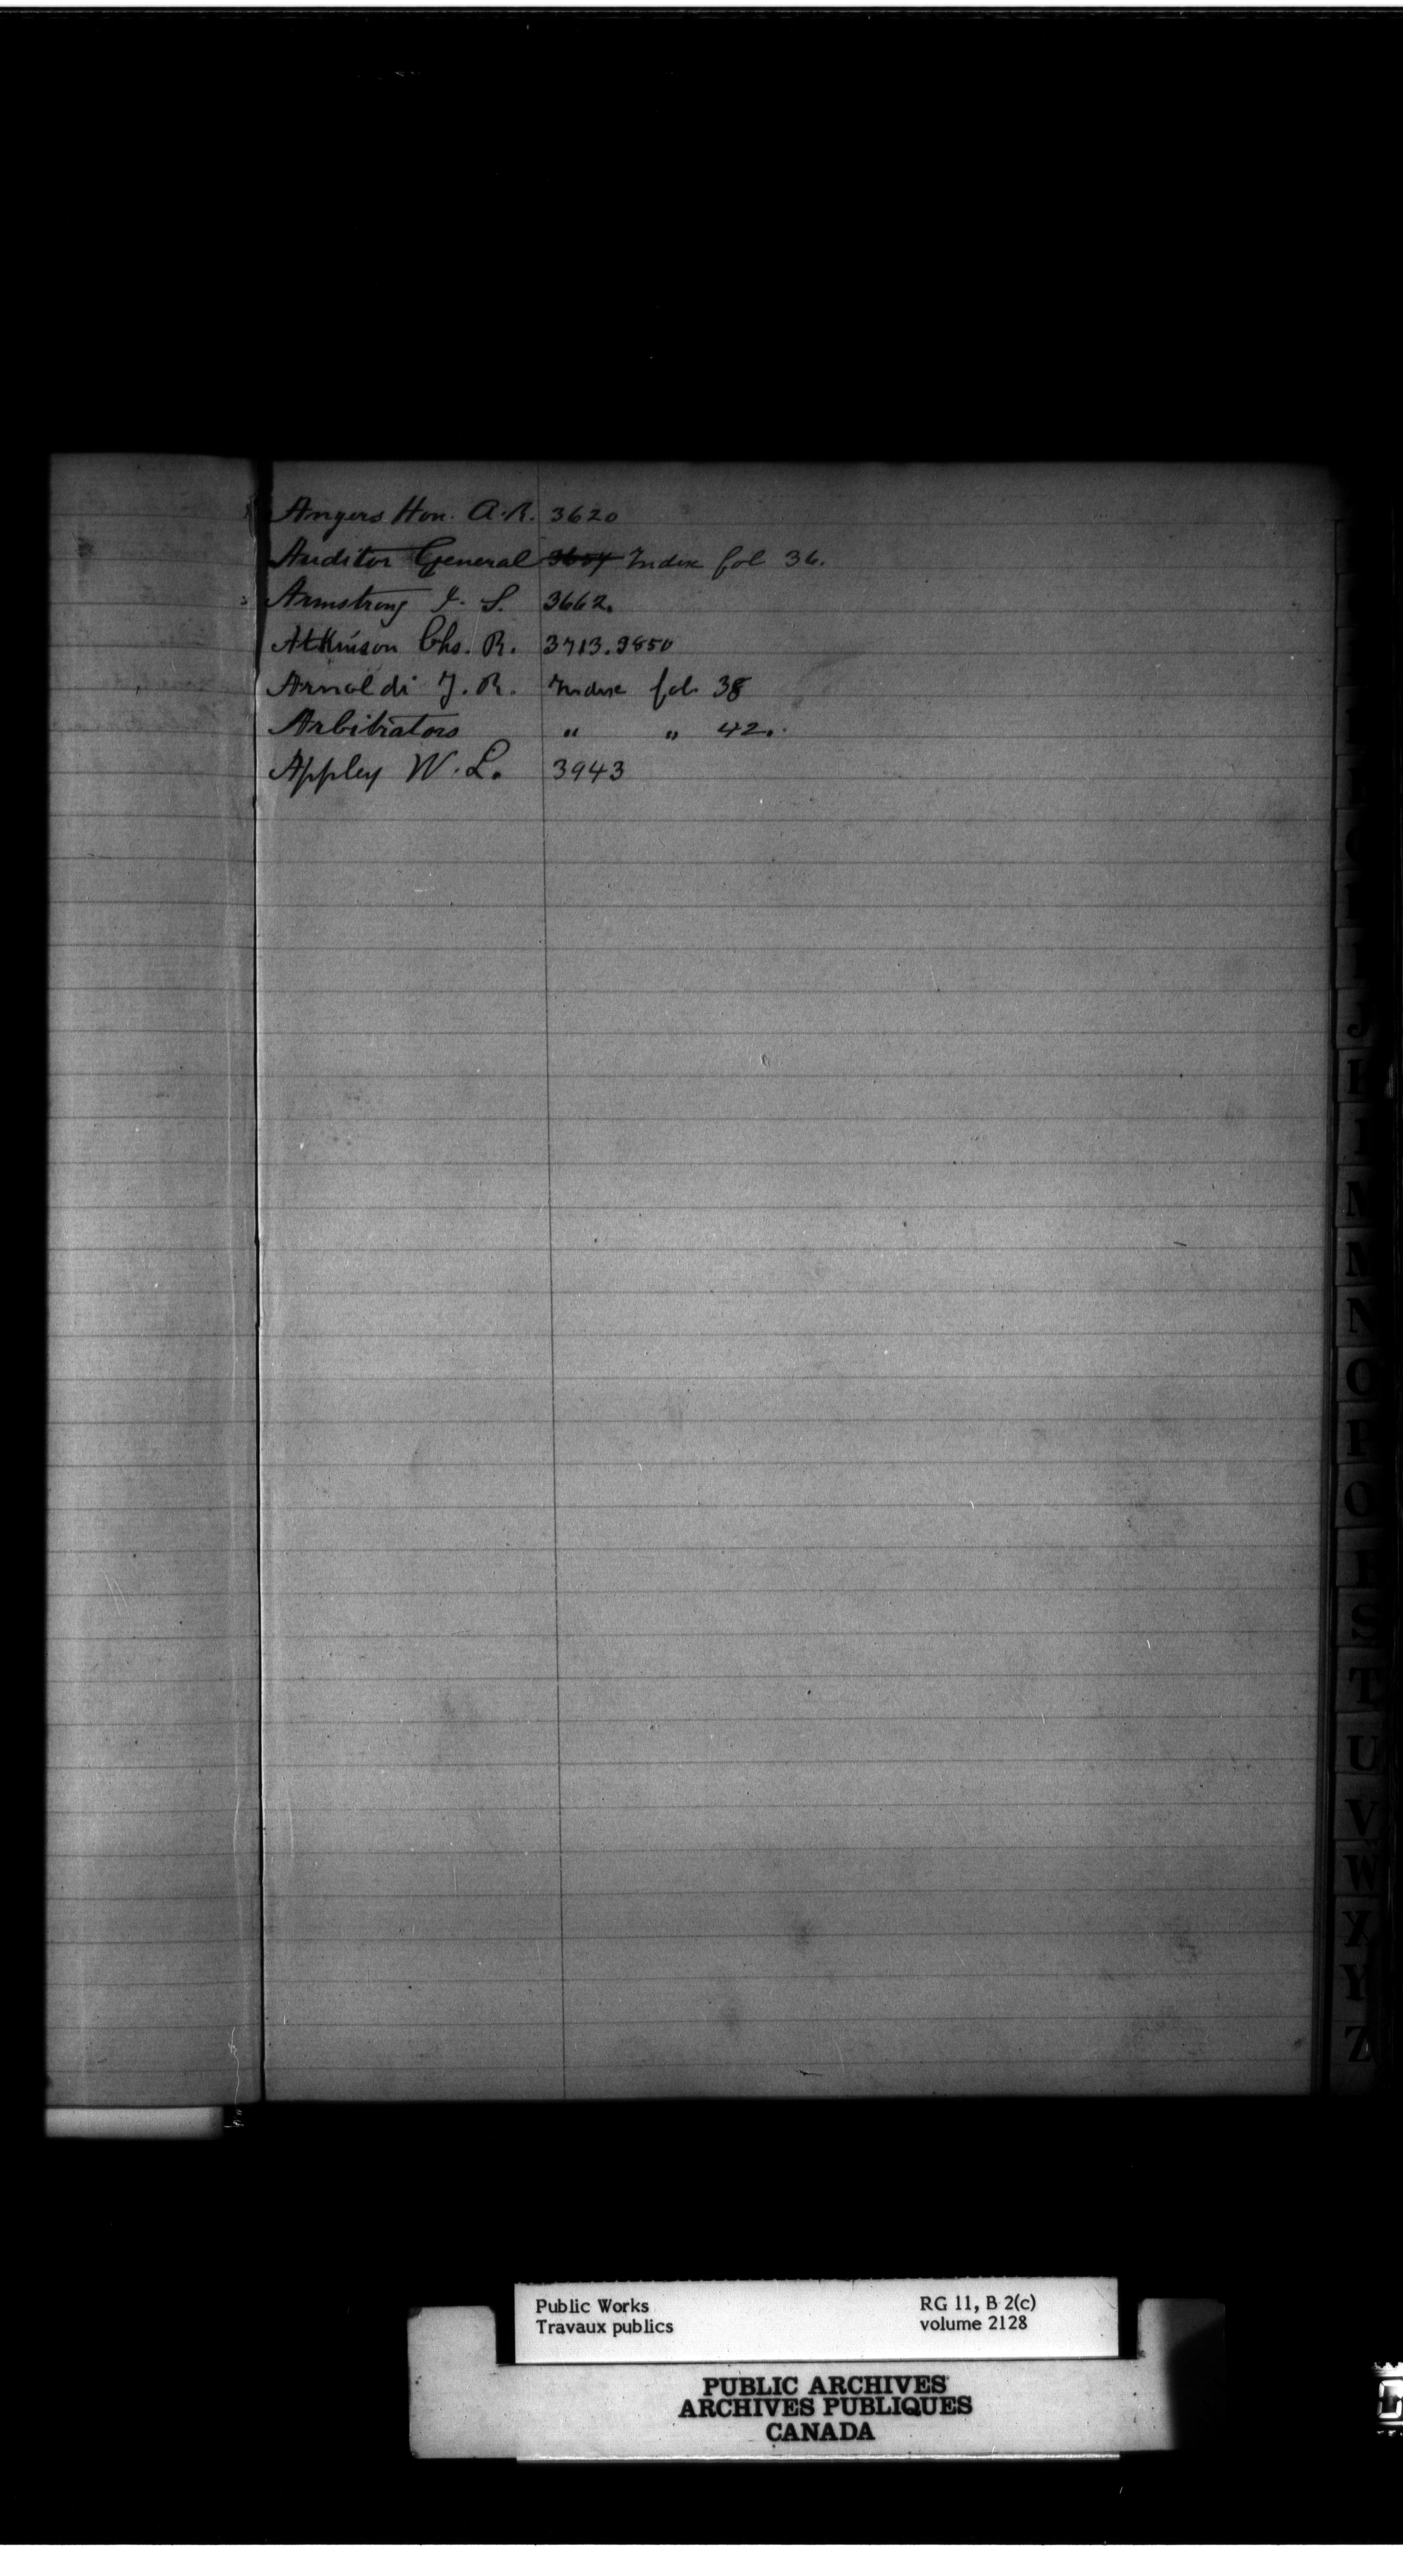 Angers Hon. A.R. 3620
Auditor General 3657 Index fol 36.
Armstrong F. S. 3662.
Atkinson Chs. R. 3713.3850
Arnoldi J. R. Index fol. 38
Arbitrators " " 42.
Appley W. L. 3943
J
N
O
P
Q
R
S
T
U
V
W
X
Y
Z
Public Works
Travaux publics
RG 11, B 2(c)
volume 2128
PUBLIC ARCHIVES
ARCHIVES PUBLIQUES
CANADA